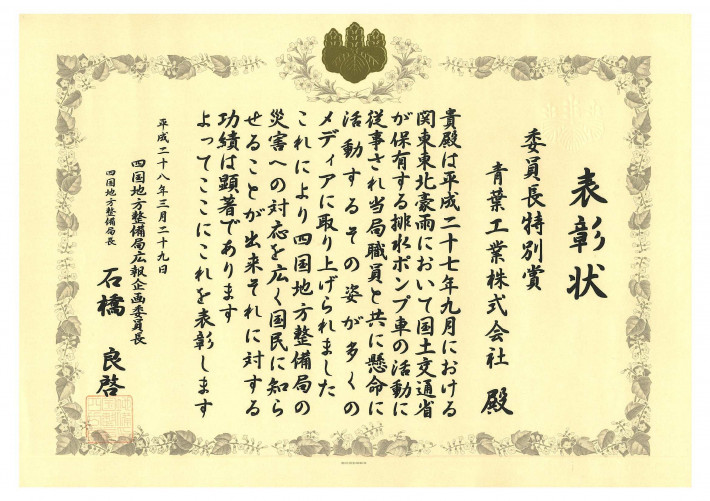 表彰状
委員長特別賞
青葉工業株式会社 殿
貴殿は平成二十七年九月における
関東東北豪雨において国土交通省
が保有する排水ポンプ車の活動に
従事され当局職員と共に懸命に
活動するその姿が多くの
メディアに取り上げられました
これにより四国地方整備局の
災害への対応を広く国民に知ら
せることが出来それに対する
功績は顕著であります
よってここにこれを表彰します
平成二十八年三月二十九日
四国地方整備局広報企画委員長
四国地方整備局長
石橋 良啓